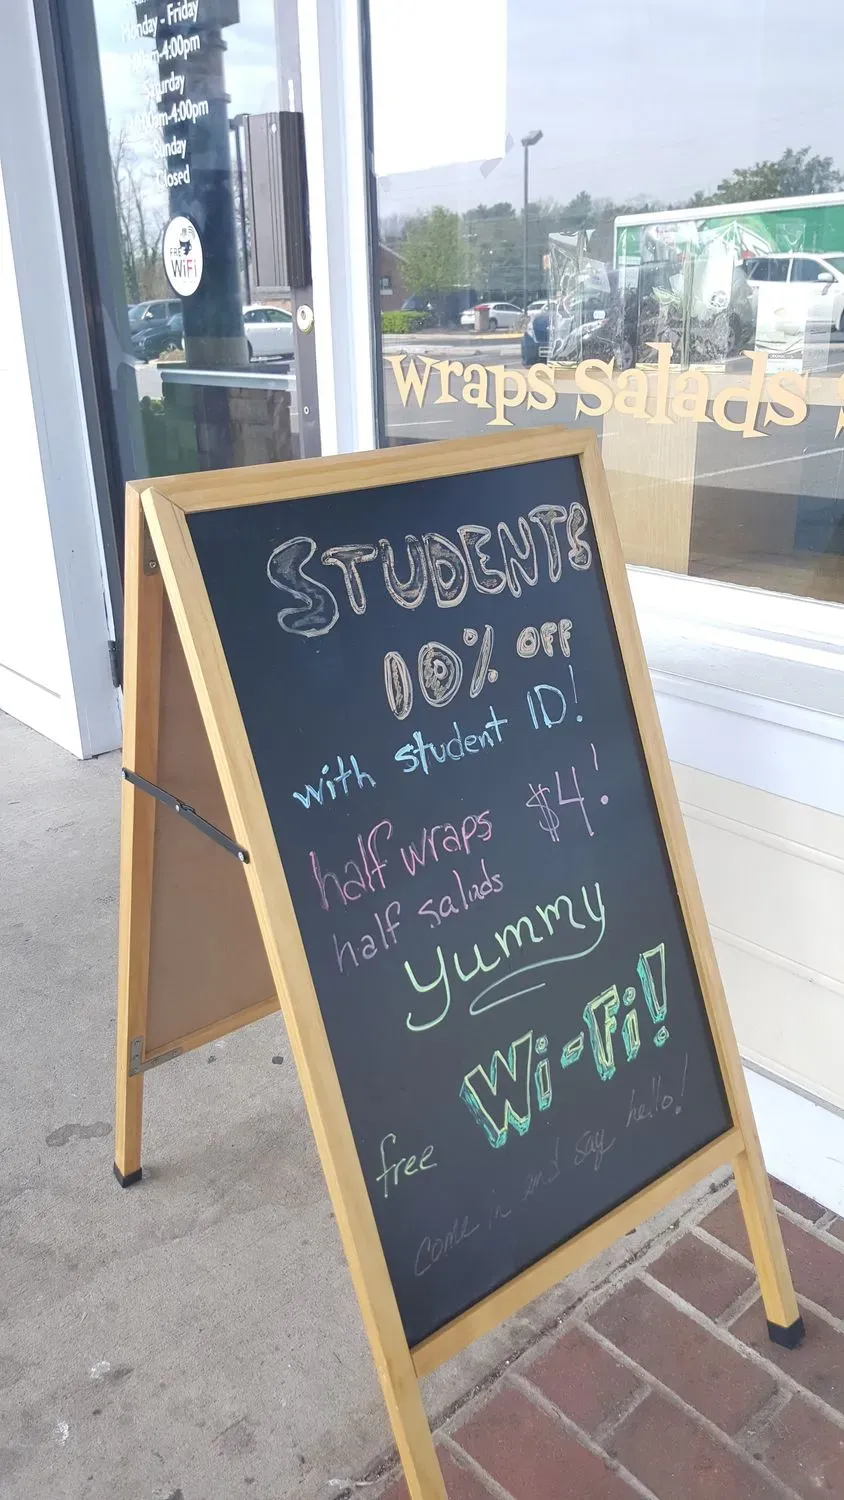 Monday - Friday
am-4:00pm
Saturday
am-4:00pm
Sunday
Closed
FREE
WiFi
wraps salads
STUDENTS
10% OFF
with student ID!
half wraps $4!
half salads
yummy
free Wi-Fi!
Come in and say hello!